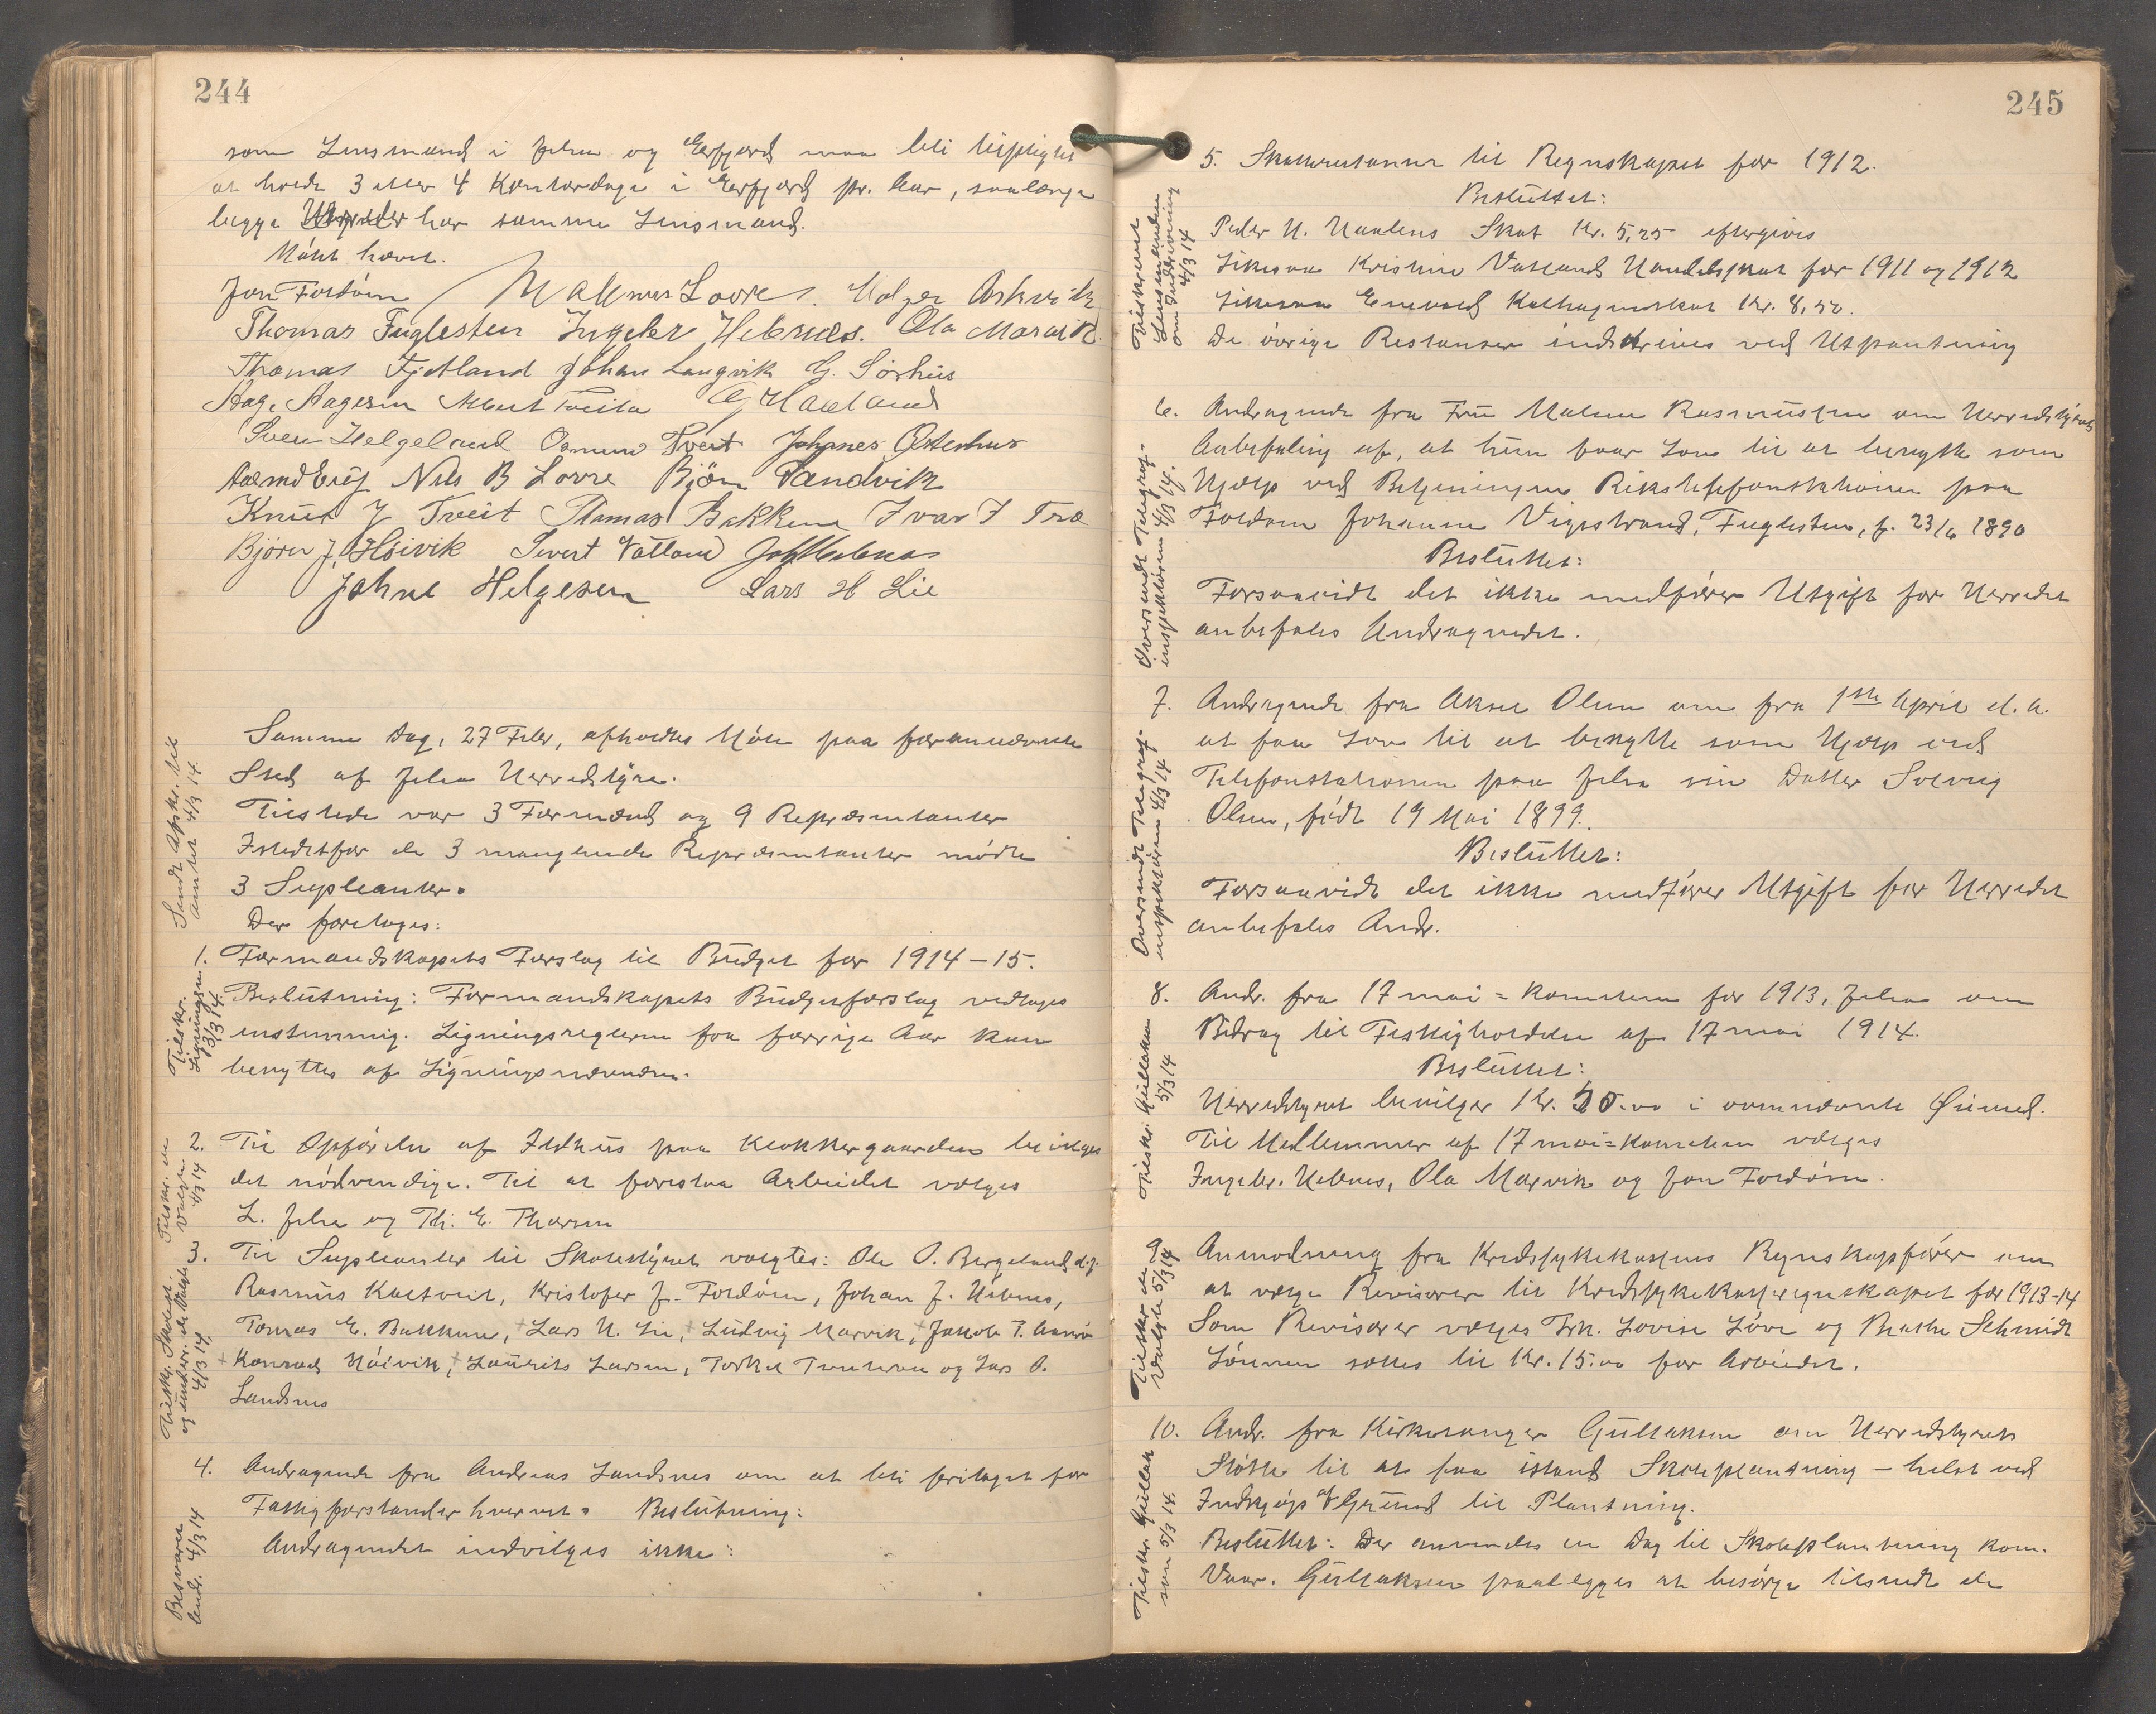 244
som Lensmand i Jelsa og Erfjord maa bli tilpligtet
at holde 3 eller 4 Kontordage i Erfjord pr. Aar, saalænge
begge Herreder har samme Lensmand.
Møtet hævet.
Jon Foldøen / M Lovre. Holger Askvik
Thomas Fuglesten Ingebr Hebnes. Ola Marvik.
Thomas Fjetland Johan Langvik G. Sørhus
Aag. Aagesen Albert G Haaland
Sven Helgeland Osmund Tveit Johanes Østerhus
Nils B Lovre Bjørn Sandvik
Knut J Tveit Thomas Bakken Ivar I Træ
Bjørn J. Høivik Sivert Vatland
Johne Helgesen Lars H Lie
Sendt Afskr. til
amtet 4/3 14.
Samme Dag, 27 Febr, afholdtes Møte paa forannævnte
Sted af Jelsa Herredstyre.
Tilstede var 3 Formænd og 9 Repræsentanter
Istedetfor de 3 manglende Repræsentanter mødte
3 Supleanter.
Der foretoges:
1. Formandskapets Forslag til Budget for 1914–15.
Beslutning: Formandskapets Budgetforslag vedtoges
enstemmig. Ligningsreglerne fra forrige Aar kan
benyttes af Ligningsnævnden.
Tilskr.
Ligningsn.
13/3 14.
2. Til Opførelse af Ildhus paa Klokkergaarden bevilges
det nødvendige. Til at forestaa Arbeidet vælges
L. Jelsa og Th. E. Thorsen
Tilskr. de
valgte
4/3 14
3. Til Supleanter til Skolestyret valgtes: Ole O. Bergeland d.y.
Rasmus Kaltveit, Kristofer J. Foldøen, Johan J. Hebnes,
Tomas E. Bakken, + Lars H. Lie, + Ludvig Marvik, + Jakob T.
+ Konrad Høivik, + Laurits Larsen, Torkel og Lars O.
Landsnes
Tilskr. Skolest.
og underr. de Valgte
4/3 14.
4. Andragende fra Andreas Landsnes om at bli fritaget for
Fattigforstanderhvervet. Beslutning:
Andragendet indvilges ikke.
Besvaret
4/3 14
245
5. Skatterestanser til Regnskapet for 1912.
Besluttet:
Peder H. Skat Kr. 5,25 eftergives
Likesaa Kristine Vatlands Handelsskat for 1911 og 1912
Likesaa Enevald Kolhagens skat Kr. 8,50.
De øvrige Restanser inddrives ved Utpantning
Tilskrevet
Lensmanden
om Inddrivning
4/3 14
6. Andragende fra Fru Malene Rasmussen om Herredstyrets
Anbefaling af, at hun faar Lov til at benytte som
Hjælp ved Betjeningen Rikstelefonstationen paa
Foldøen Johanne Vigestrand, Fuglesten, f. 23/6 1890
Besluttet:
Forsaavidt det ikke medfører Utgift for Herredet
anbefales Andragendet.
Oversendt Telegraf-
inspektøren 4/3 14.
7. Andragende fra Aksel Olsen om fra 1ste April d. A.
at faa Lov til at benytte som Hjælp ved
Telefonstationen paa Jelsa sin Datter Solveig
Olsen, født 19 Mai 1899.
Besluttet:
Forsaavidt det ikke medfører Utgift for Herredet
anbefales Andr.
Oversendt Telegraf-
inspektøren 4/3 14
8. Andr. fra 17 mai = Komiteen for 1913, Jelsa om
Bidrag til Festligholdelse af 17 mai 1914.
Besluttet:
Herredstyret bevilger Kr. 20.00 i ovennævnte Øiemed.
Til Medlemmer af 17 mai = Komiteen vælges
Ingebr. Hebnes, Ola Marvik og Jon Foldøen.
Tilskr. Gullaksen
5/3 14
9. Anmodning fra Kredssykekassens Regnskapsfører om
at vælge Revisorer til Kredssykekasseregnskapet for 1913–14
Som Revisorer vælges Frk. Lovise Løve og Schmidt
Lønnen sættes til Kr. 15.00 for Arbeidet.
Tilskr. de
Valgte 5/3 14
10. Andr. fra Kirkesanger Gullaksen om Herredstyrets
Støtte til at faa istand Skoleplantning – helst ved
Indkjøp af Grund til Plantning.
Besluttet: Der anvendes en Dag til Skoleplantning kom.
Vaar. Gullaksen paalegges at besørge tilsendt de
Tilskr. Gullak
sen 5/3 14.